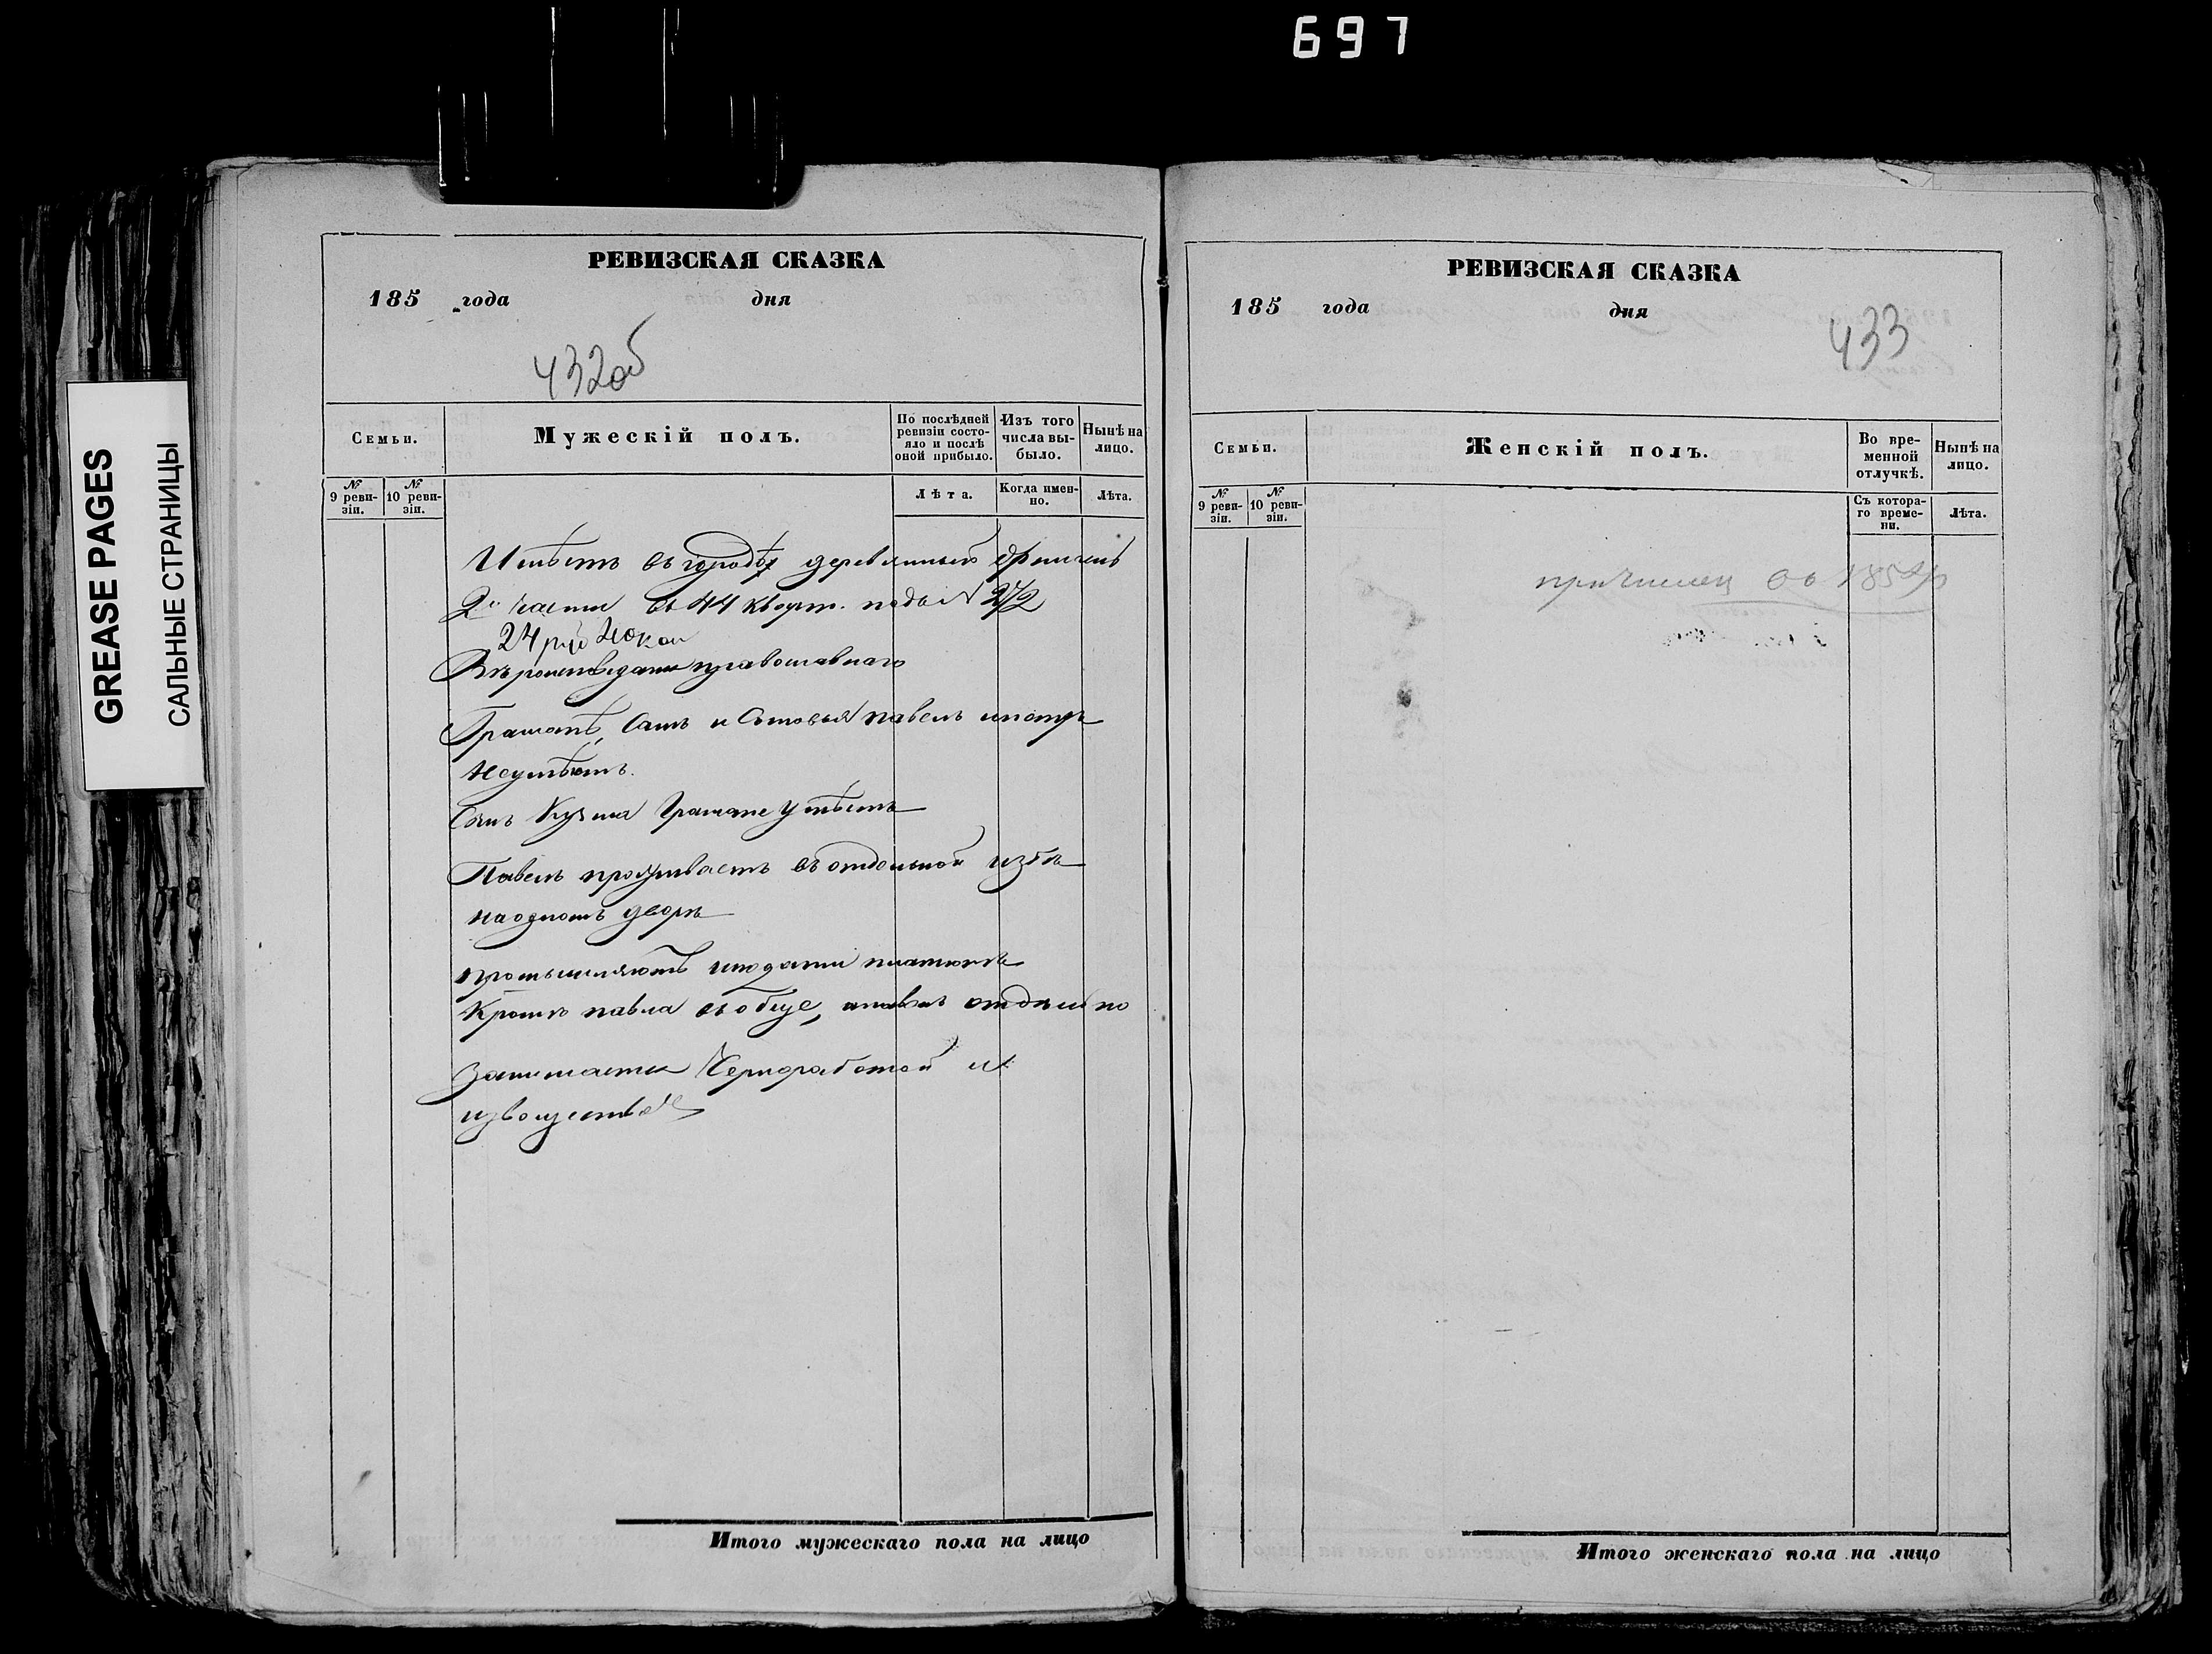 697
GREASE PAGES
САЛЬНЫЕ СТРАНИЦЫ
РЕВИЗСКАЯ СКАЗКА
185 года дня
432об
Семьи.
Мужескій полъ.
По послѣдней ревизіи состо-
яло и послѣ
оной прибыло.
Изъ того
числа вы-
было.
Нынѣ на
лицо.
№
9 реви-
зіи.
№
10 реви-
зіи.
Лѣта.
Когда имен-
но.
Лѣта.
Имѣетъ въ городѣ деревянный
2й части въ 44 кварт. подъ N 272
24 руб 40 коп
Вѣроисповѣдания православнаго
Грамотѣ, Самъ и Сыновья павелъ ипетръ
Неумѣютъ.
Сынъ Кузма Грамоте Умѣетъ
Павелъ проживаетъ въ отдельной избѣ
на одномъ дворѣ
промышляютъ иподати платютъ
Кромѣ павла въобще, апавелъ отдѣльно
Занимается Чернработой и
извоществомъ
РЕВИЗСКАЯ СКАЗКА
185 года дня
433
Семьи.
Женскій полъ.
Во вре-
менной
отлучкѣ.
Нынѣ на
лицо.
№
9 реви-
зіи.
№
10 реви-
зіи.
Съ котора-
го време-
ни.
Лѣта.
причислен
Итого мужескаго пола на лицо
Итого женскаго пола на лицо